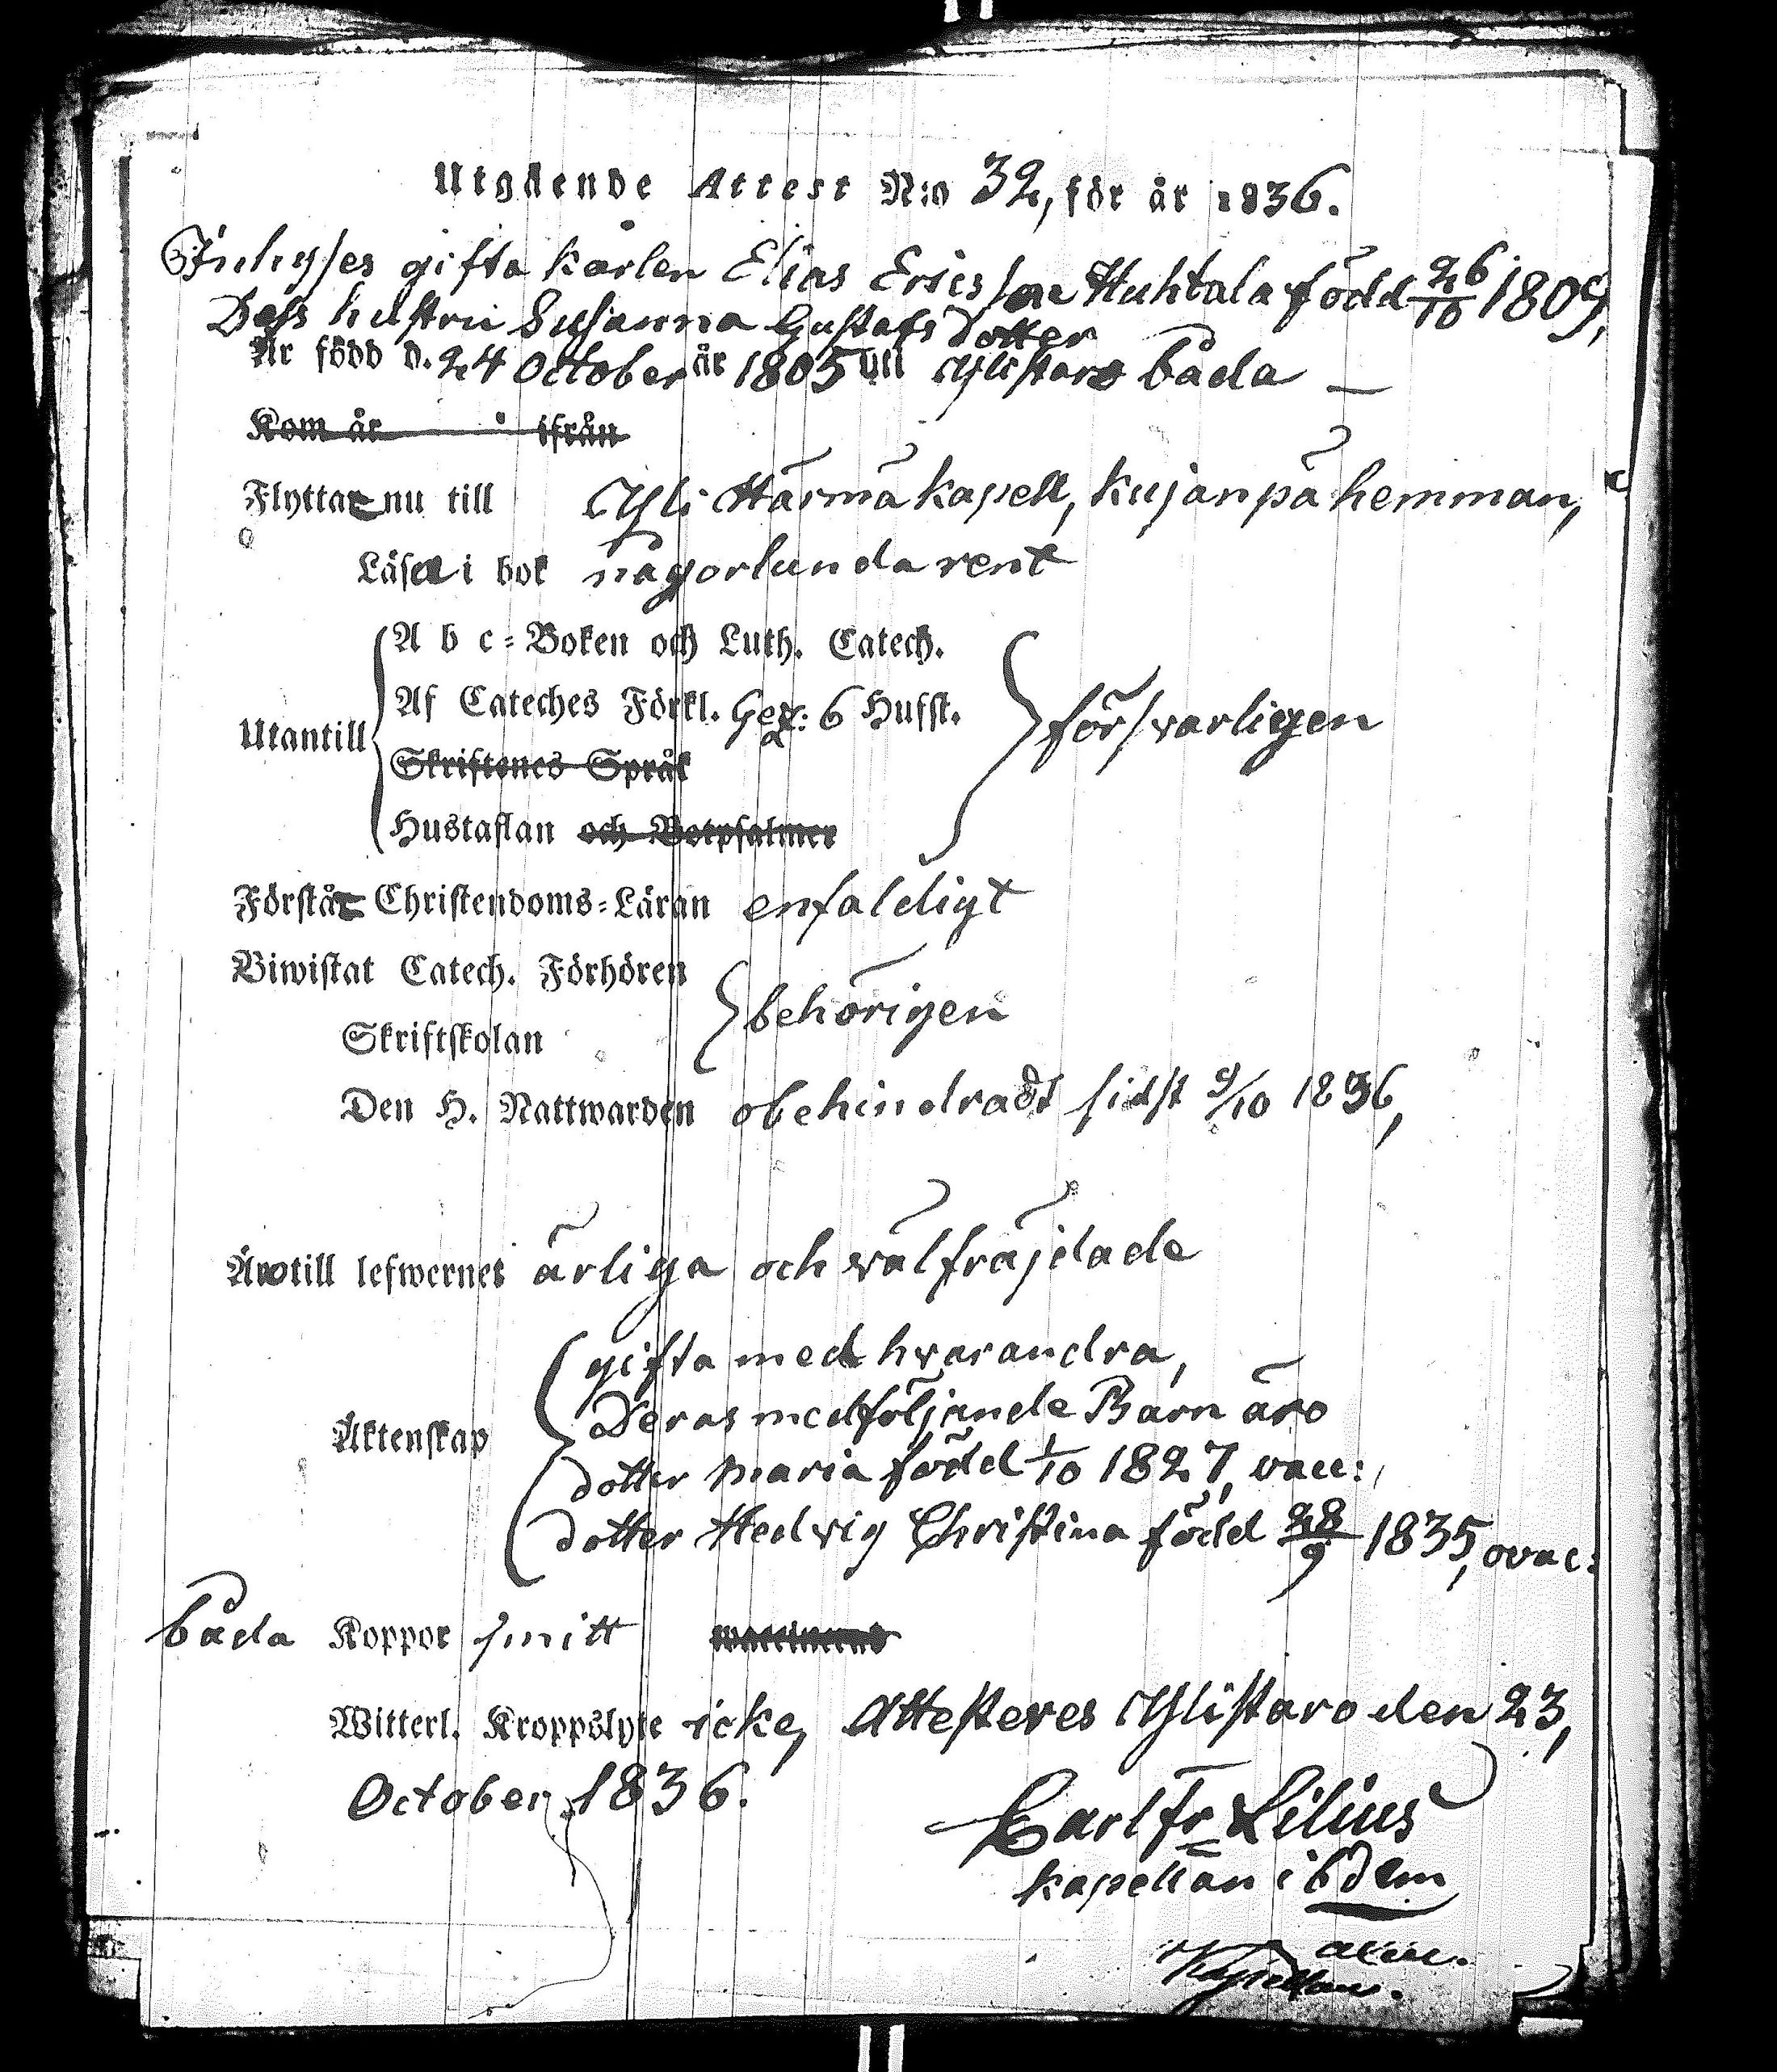 Utgående Attest N:o 32, för år 1836.
Inhyses gifta karlen Elias Ericsson Huhtala född 26/10 1809,
Dess hustru Susanna Gustafs dotter
Är född d. 24 October år 1805 uti Ylistaro båda —
Kom år ifrån
Flytta nu till Yli Härmä kapell, Kujanpä hemman,
Läsa i bok någorlunda rent
A b c-Boken och Luth. Catech.
Af Cateches Förkl. 6 Hufst.
Utantill försvarligen
Skriftenes Språk
Hustaflan och Botpsalmer
Förstå Christendoms-Läran enfaldigt
Biwistat Catech. Förhören
behörigen
Skriftskolan
Den H. Nattwarden obehindradt sidst 9/10 1836,
Äro till lefwernet ärliga och välfräjdade
gifta med hvarandra,
Deras medföljande Barn äro
Äktenskap
dotter Maria född 1/10 1827, vacc:,
dotter Hedvig Christina född 28/9 1835, ovac:
båda Koppor smitt
Witterl. Kroppslyte icke, Attesteres Ylistaro den 23,
October 1836.
Carl Fr Lilius
kapellan ibdm
Kapellan.